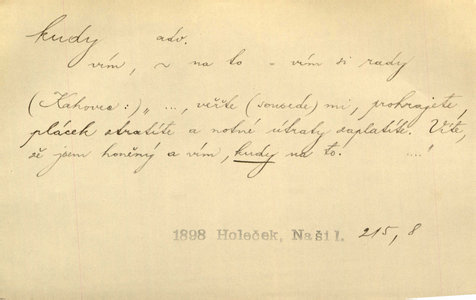 kudy adv.
vím, ~ na to - vím si rady
(Kahovec:) „ ..., věřte (sousede) mi, prohrajete,
plácek ztratíte a notné útraty zaplatíte. Víte,
že jsem honěný a vím, kudy na to. ...."
1898 Holeček, Naši I. 215, 8